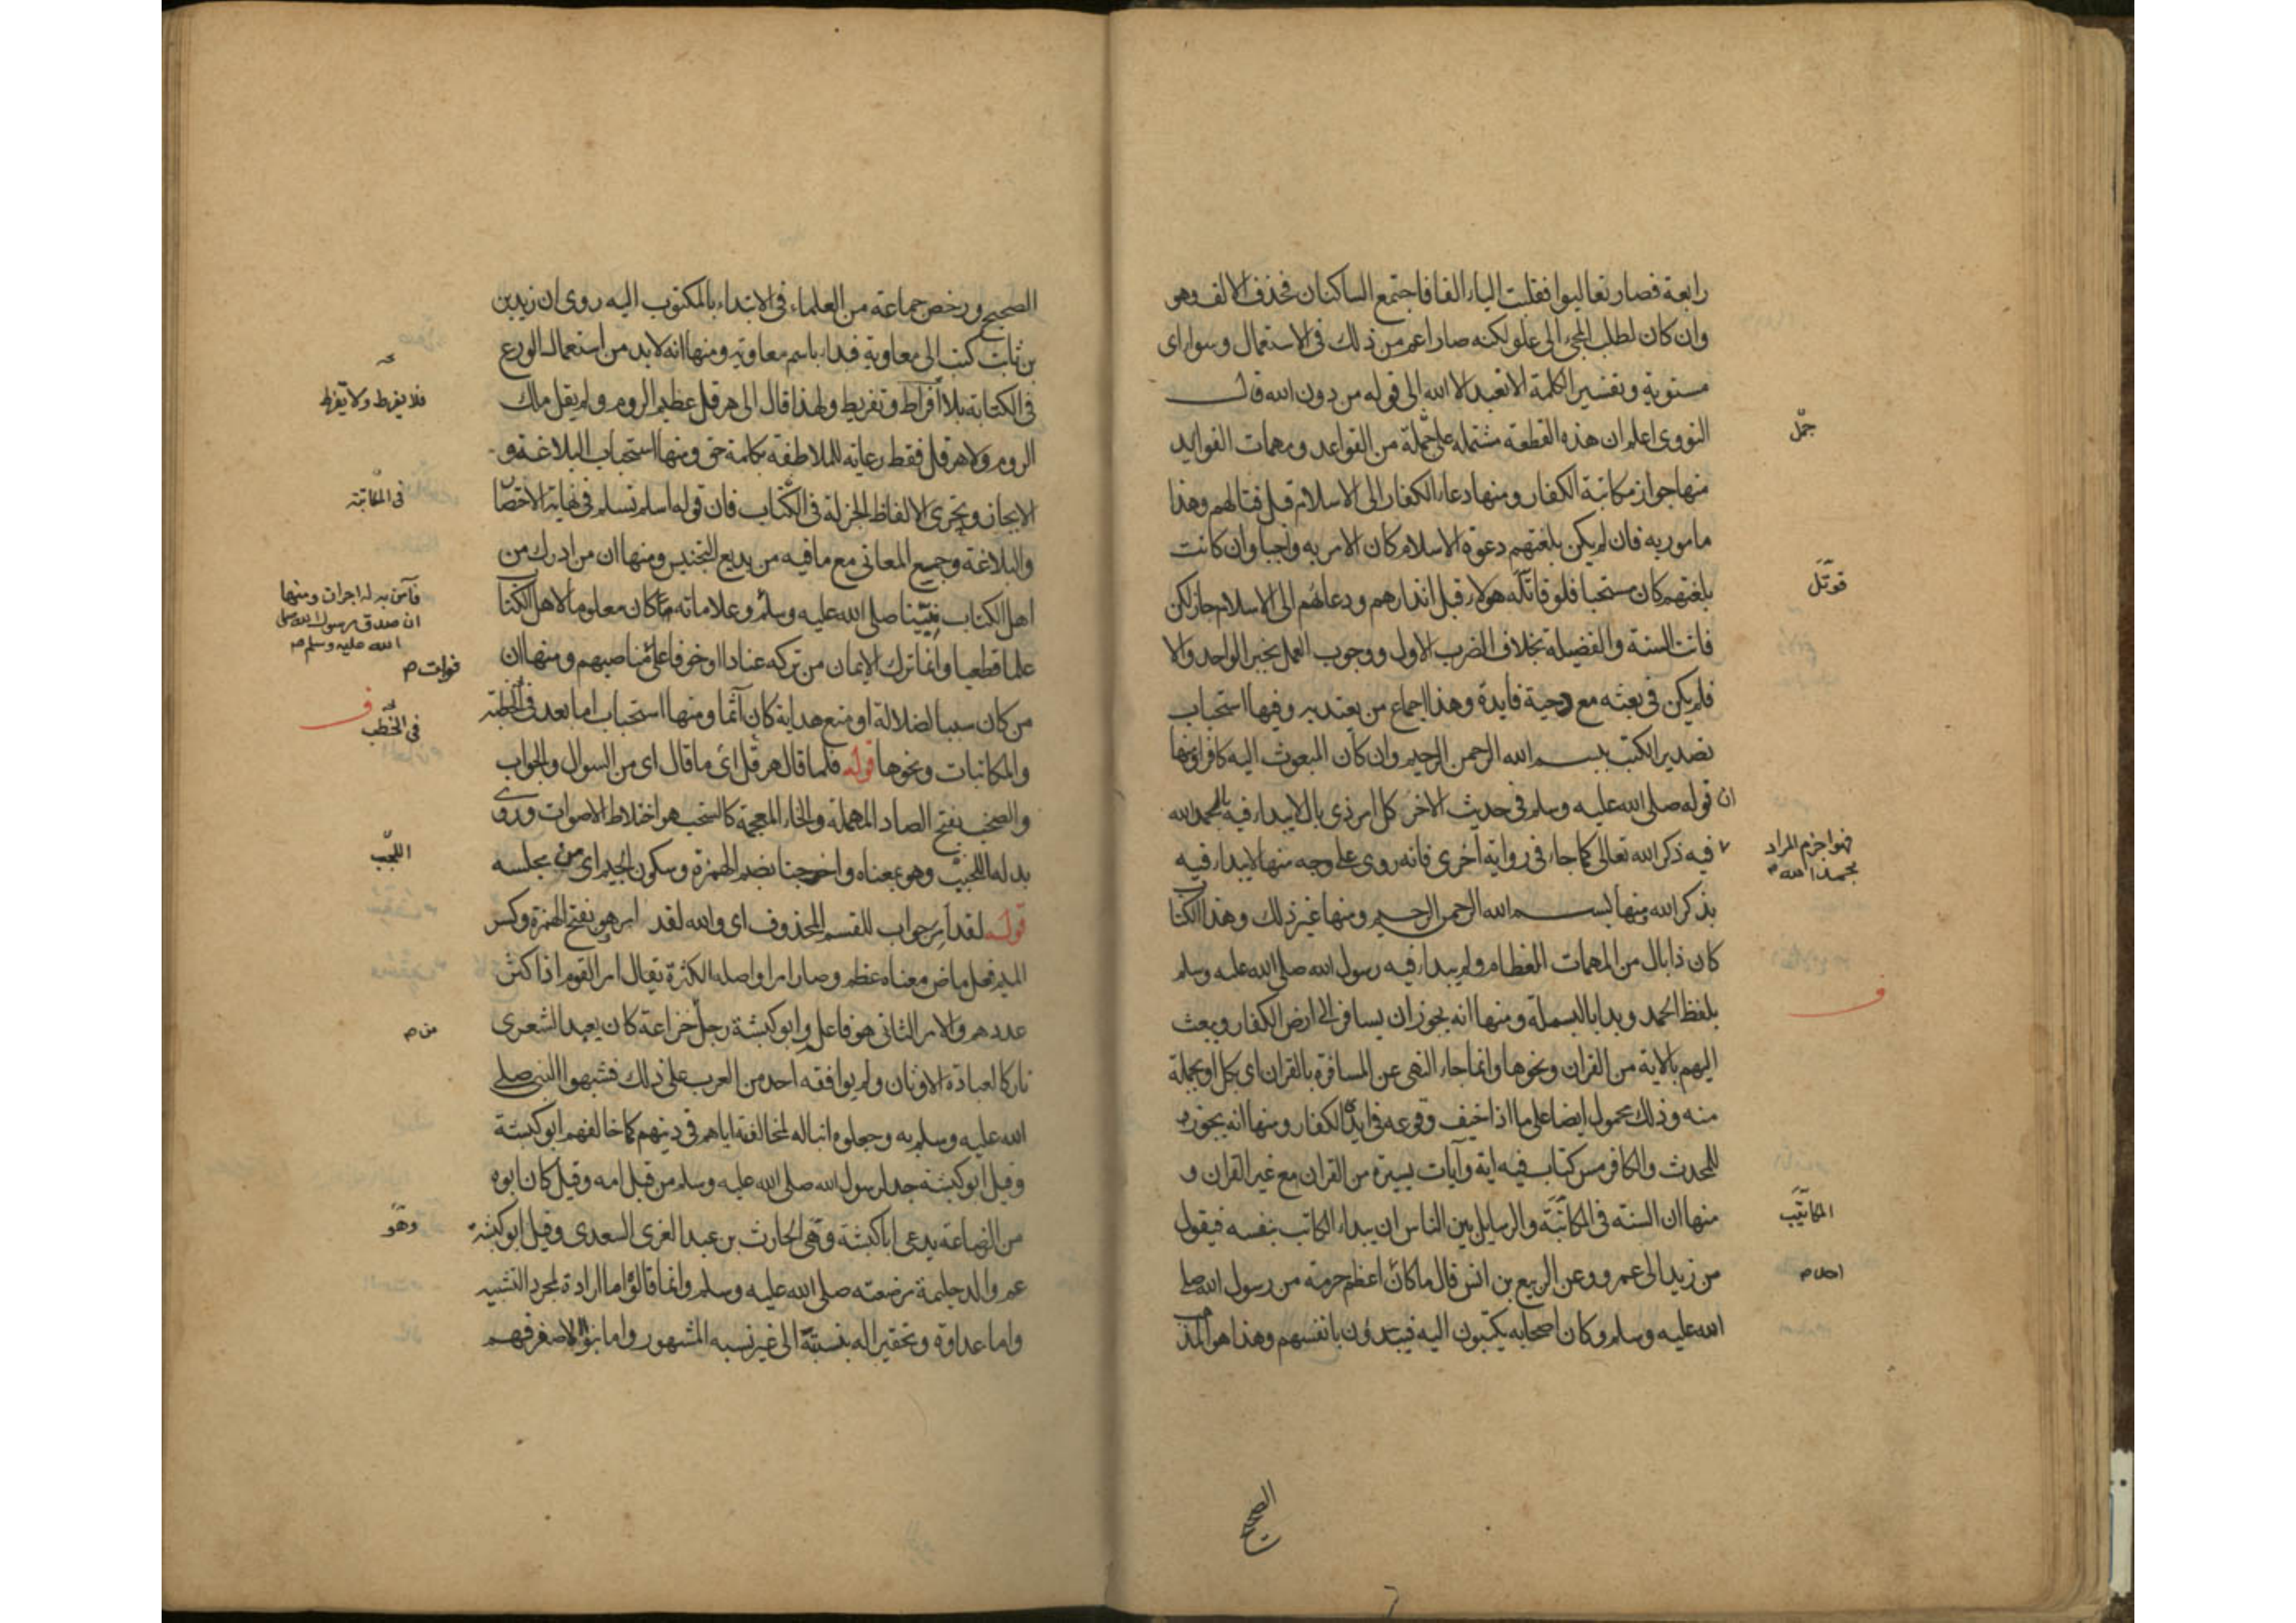 رابعة فصار تعاليوا فقلبت الياء الفا فاجتمع الساكنان فحذف الالف وهو
وان كان لطلب المجئ الى علو لكنه صار اعم من ذلك فى الاستعمال وسواء اى
مستوية وتفسير الكلمة الا نعبد الا الله الى قوله من دون الله قال
النووى اعلم ان هذه القطعة مشتمله على جملة من القواعد ومهمات الفوايد
جمل
منها جواز مكاتبة الكفار ومنها دعاء الكفار الى الاسلام قبل قتالهم وهذا
مامور به فان لم يكن بلغتهم دعوة الاسلام كان الامر به واجبا وان كانت
بلغتهم كان مستحبا فلو قاتله هولاء قبل انذارهم ودعائهم الى الاسلام جاز لكن
قوتل
فاتت السنة والفضيلة بخلاف الضرب الاول ووجوب العمل بخبر الواحد والا
فلم يكن فى بعثه مع دحية فايدة وهذا اجماع من يعتد به وفيها استحباب
تصدير الكتب ببسم الله الرحمن الرحيم وان كان المبعوث اليه كافرا ومنها
ان قوله صلى الله عليه وسلم فى حديث الاخر كل امر ذى بال لا يبداء فيه بالحمد لله
فيه ذكر الله تعالى كما جاء فى رواية اخرى فانه روى على وجه منها لا يبداء فيه
فهو اجزم المراد
بحمد الله م
بذكر الله ومنها ببسم الله الرحمن الرحيم ومنها غير ذلك وهذا الكتاب
كان ذا بال من المهمات العظام ولم يبداء فيه رسول الله صلى الله عليه وسلم
بلفظ الحمد وبدا بالبسملة ومنها انه يجوز ان يسافر الى ارض الكفار ويبعث
اليهم بالاية من القران ونحوها وانما جاء النهى عن المسافرة بالقران اى بكل او بجملة
منه وذلك محمول ايضا على ما اذا خيف وقوعه فى ايدى الكفار ومنها انه يجوز
للمحدث والكافر مس كتاب فيه اية وآيات يسيرة من القران مع غير القران و
منها ان السنة فى المكاتبة والرسايل بين الناس ان يبداء الكاتب بنفسه فيقول
المكاتيب
من زيد الى عمرو وعن الربيع بن انس قال ما كان اعظم حرمة من رسول الله صلى
احد م
الله عليه وسلم وكان اصحابه يكتبون اليه فيبتدؤن بانفسهم وهذا هو المذهب
الصحيح
الصحيح ورخص جماعة من العلماء فى الابتداء بالمكتوب اليه روى ان زيد بن
بن ثابت كتب الى معاوية فبداء باسم معاوية ومنها انه لا بد من استعمال الورع
فى الكتابة بلا افراط وتفريط ولهذا قال الى هرقل عظيم الروم ولم يقل ملك
فلا يفرط ولا يفرط
الروم ولا هرقل فقط رعاية للملاطفة بكلمة حق ومنها استحباب البلاغة و
الايجاز وتحرى الالفاظ الجزلة فى الكتاب فان قوله اسلم تسلم فى نهاية الاختصار
فى المكاتبة
والبلاغة وجميع المعانى مع ما فيه من بديع التجنيس ومنها ان من ادرك من
اهل الكتاب نبينا صلى الله عليه وسلم وعلاماته مما كان معلوما لاهل الكتاب
فآمن به له اجران ومنها
ان صدق رسول الله صلى
الله عليه وسلم م
علما قطعيا وانما ترك الايمان من تركه عنادا او خوفا على مناصبهم ومنها ان
فوات م
من كان سببا لضلالة او منع هداية كان آثما ومنها استحباب اما بعد فى الخطبة
فى الخطب
والمكاتبات ونحوها قوله فلما قال هرقل اى ما قال اى من السوال والجواب
والصخب بفتح الصاد المهملة والخاء المعجمة كالسخب هو اختلاط الاصوات وروى
بدله اللجب وهو بمعناه واخرجنا بضم الهمزة وسكون الجيم اى من مجلسه
اللجب
قوله لقد امر جواب للقسم المحذوف اى والله لقد امر هو بفتح الهمزة وكسر
الميم فعل ماض معناه عظم وصار امرا واصله الكثرة يقال امر القوم اذا كثر
عددهم والامر الثانى هو فاعل وابو كبشة رجل خزاعة كان يعبد الشعرى
من م
تاركا لعبادة الاوثان ولم يوافقه احد من العرب على ذلك فشبهوا النبى صلى
الله عليه وسلم به وجعلوه ابنا له لمخالفته اياهم فى دينهم كما خالفهم ابو كبشة
وقيل ابو كبشة جد لرسول الله صلى الله عليه وسلم من قبل امه وقيل كان ابوه
من الرضاعة يدعى ابا كبشة وهى الحارث بن عبد العزى السعدى وقيل ابو كبشة
وهو
عم والد حليمة مرضعته صلى الله عليه وسلم وانما قالوا اما ارادة لمجرد التشبيه
واما عداوة وتحقيرا له بنسبته الى غير نسبه المشهور واما بنو الاصفر فهم